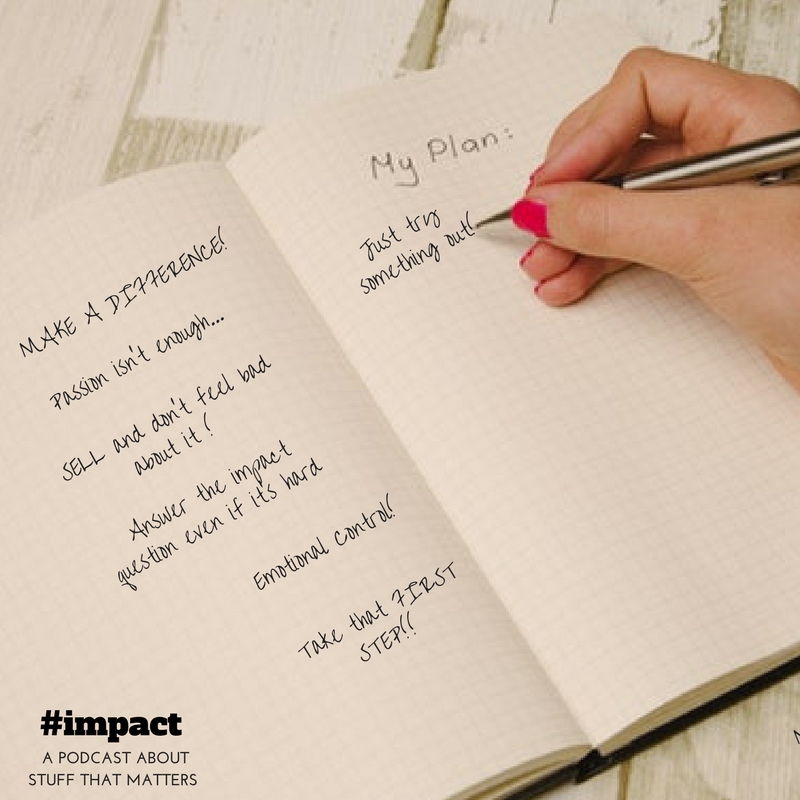 MAKE A DIFFERENCE!
Passion isn't enough...
SELL and don't feel bad
about it!
Answer the impact
question even if it's hard
Emotional control!
Take that FIRST
STEP!!
My Plan:
Just try
something out!
#impact
A PODCAST ABOUT
STUFF THAT MATTERS